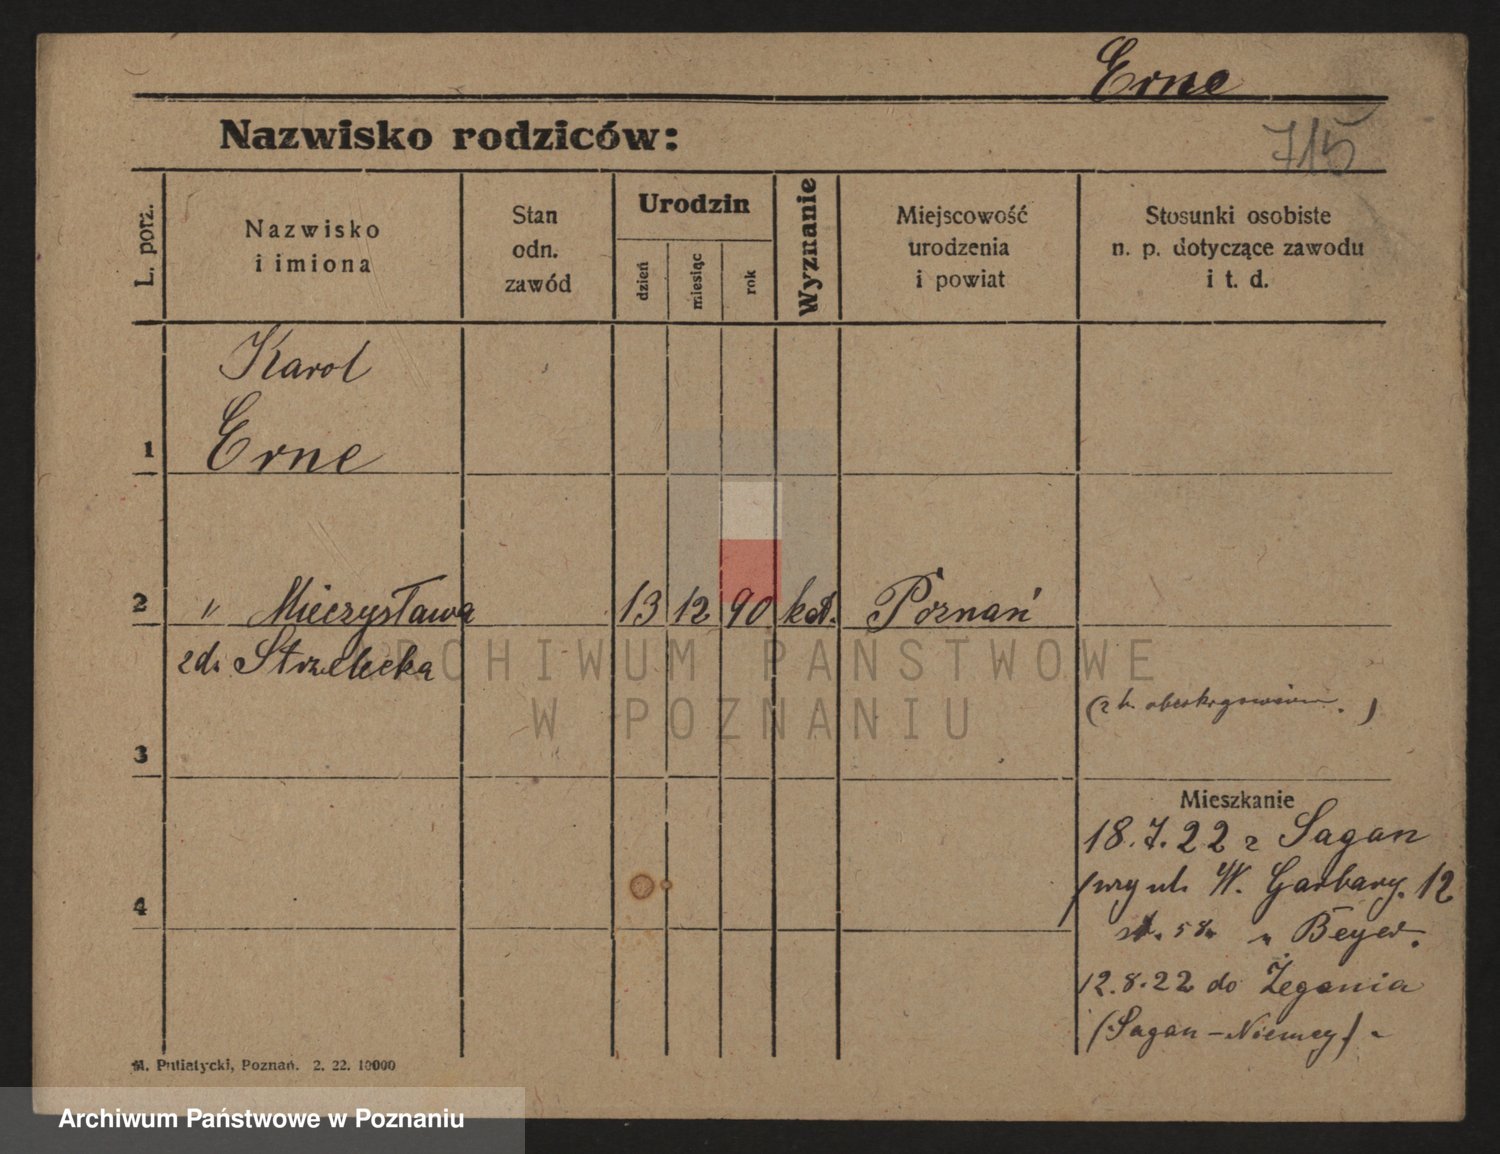 Erne
715
Nazwisko rodziców:
L. porz.
Nazwisko
i imiona
Stan
odn.
zawód
Urodzin
dzień
miesiąc
rok
Wyznanie
Miejscowość
urodzenia
i powiat
Stosunki osobiste
n. p. dotyczące zawodu
i t. d.
Karol
1 Erne
2 " Mieczysława 13 12 90 kat. Poznań
zd. Strzelecka
3
Mieszkanie
18.7.22 z Sagan
przy ul. W. Garbary. 12
4
u Beyer.
12.8.22 do Żegania
(Sagan - Niemcy)
M. Putiatycki, Poznań. 2. 22. 10000
ARCHIWUM PAŃSTWOWE
W POZNANIU
Archiwum Państwowe w Poznaniu